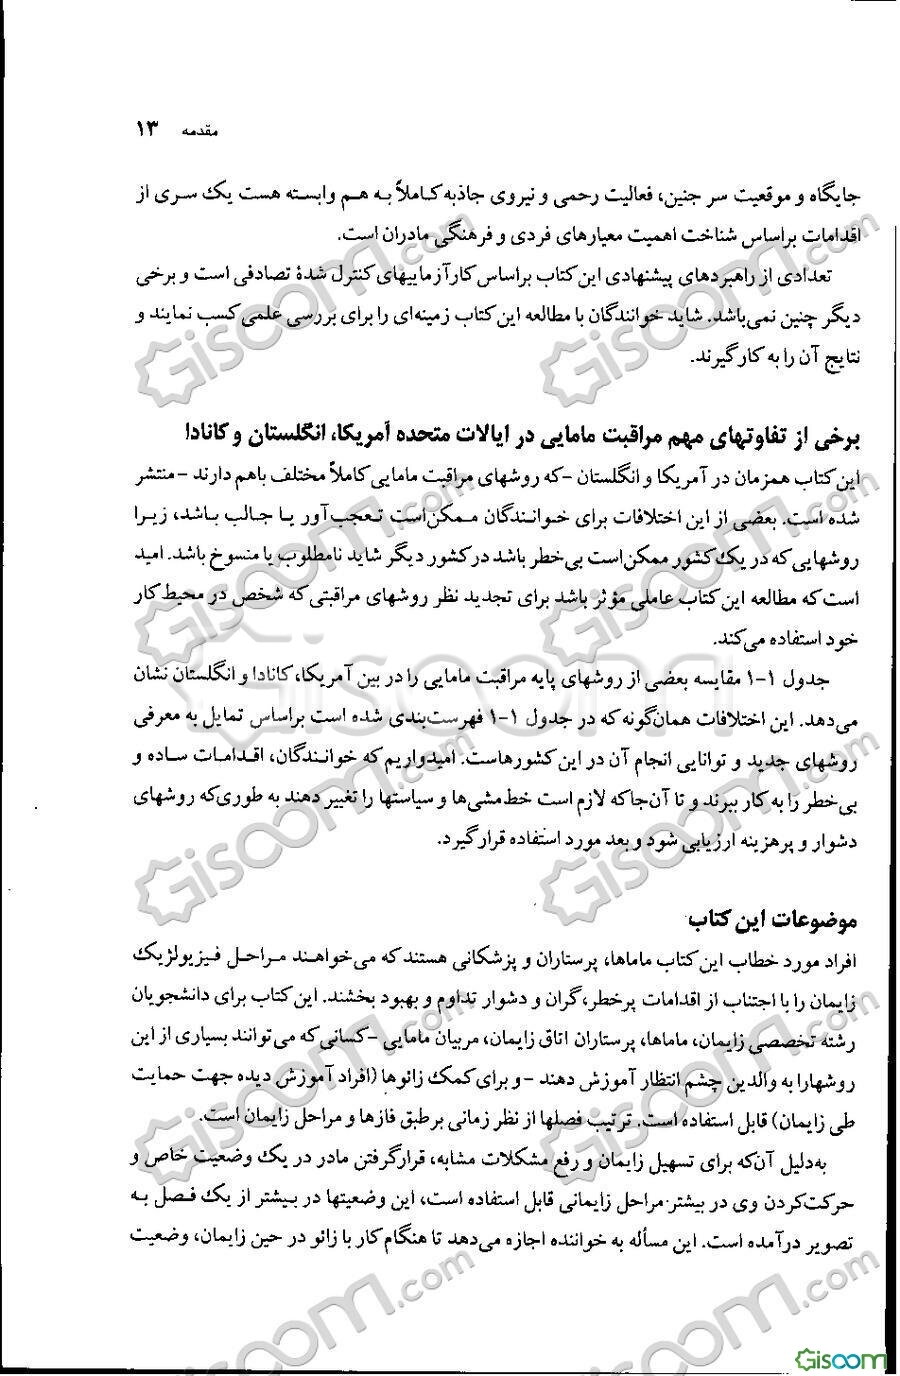 مقدمه ۱۳
جایگاه و موقعیت سر جنین، فعالیت رحمی و نیروی جاذبه کاملاً به هم وابسته هست یک سری از
اقدامات براساس شناخت اهمیت معیارهای فردی و فرهنگی مادران است.
تعدادی از راهبردهای پیشنهادی این کتاب براساس کارآزماییهای کنترل شدهٔ تصادفی است و برخی
دیگر چنین نمی‌باشد. شاید خوانندگان با مطالعه این کتاب زمینه‌ای را برای بررسی علمی کسب نمایند و
نتایج آن را به کار گیرند.
برخی از تفاوتهای مهم مراقبت مامایی در ایالات متحده آمریکا، انگلستان و کانادا
این کتاب همزمان در آمریکا و انگلستان -که روشهای مراقبت مامایی کاملاً مختلف باهم دارند -منتشر
شده است. بعضی از این اختلافات برای خوانندگان ممکن‌است تعجب‌آور یا جالب باشد، زیرا
روشهایی که در یک کشور ممکن‌است بی‌خطر باشد در کشور دیگر شاید نامطلوب یا منسوخ باشد. امید
است که مطالعه این کتاب عاملی مؤثر باشد برای تجدید نظر روشهای مراقبتی که شخص در محیط کار
خود استفاده می‌کند.
جدول ۱-۱ مقایسه بعضی از روشهای پایه مراقبت مامایی را در بین آمریکا، کانادا و انگلستان نشان
می‌دهد. این اختلافات همان‌گونه که در جدول ۱-۱ فهرست‌بندی شده است براساس تمایل به معرفی
روشهای جدید و توانایی انجام آن در این کشورهاست. امیدواریم که خوانندگان، اقدامات ساده و
بی‌خطر را به کار ببرند و تا آن‌جا که لازم است خط‌مشی‌ها و سیاستها را تغییر دهند به طوری‌که روشهای
دشوار و پرهزینه ارزیابی شود و بعد مورد استفاده قرار گیرد.
موضوعات این کتاب
افراد مورد خطاب این کتاب ماماها، پرستاران و پزشکانی هستند که می‌خواهند مراحل فیزیولژیک
زایمان را با اجتناب از اقدامات پرخطر، گران و دشوار تداوم و بهبود بخشند. این کتاب برای دانشجویان
رشته تخصصی زایمان، ماماها، پرستاران اتاق زایمان، مربیان مامایی -کسانی که می‌توانند بسیاری از این
روشهارا به والدین چشم انتظار آموزش دهند -و برای کمک زائوها (افراد آموزش دیده جهت حمایت
طی زایمان) قابل استفاده است. ترتیب فصلها از نظر زمانی برطبق فازها و مراحل زایمان است.
به‌دلیل آن‌که برای تسهیل زایمان و رفع مشکلات مشابه، قرارگرفتن مادر در یک وضعیت خاص و
حرکت‌کردن وی در بیشتر مراحل زایمانی قابل استفاده است، این وضعیتها در بیشتر از یک فصل به
تصویر درآمده است. این مسأله به خواننده اجازه می‌دهد تا هنگام کار با زائو در حین زایمان، وضعیت
Gisoom